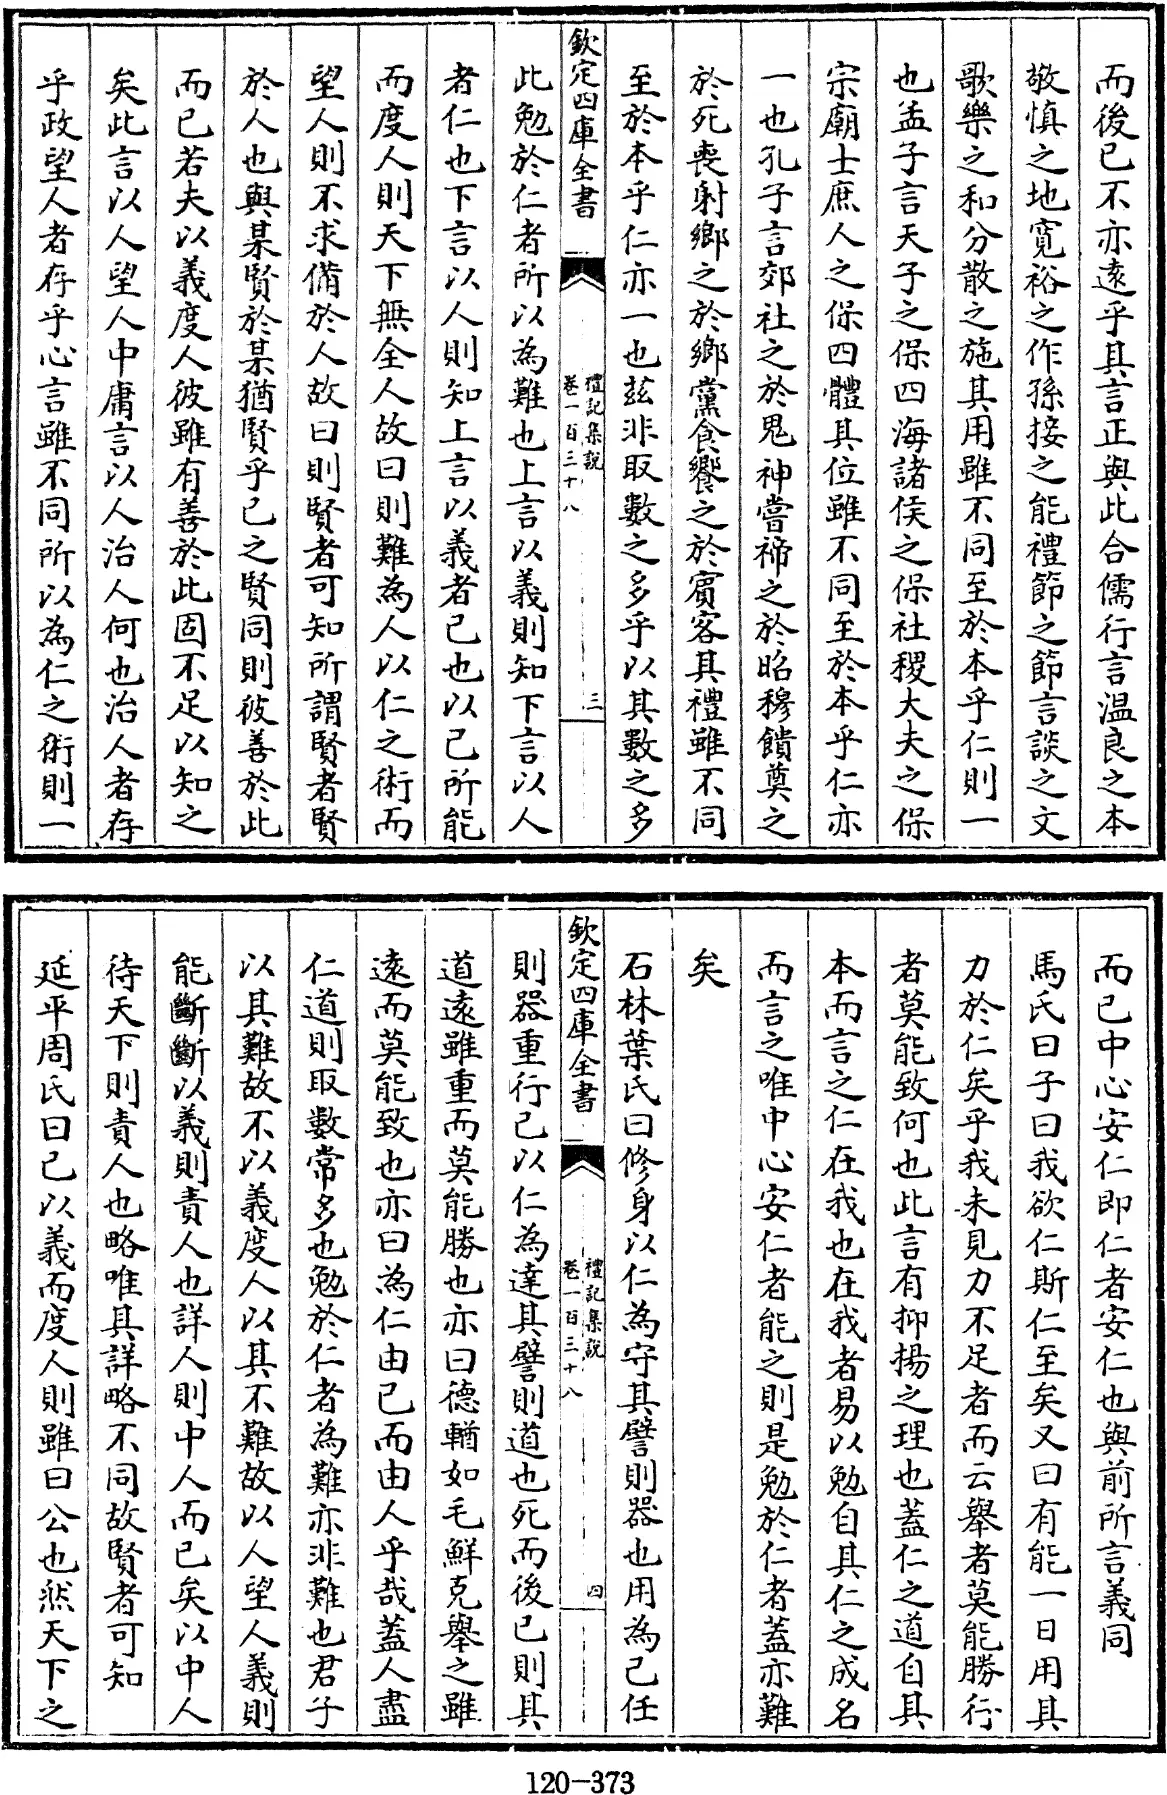 而後已不亦遠乎其言正與此合儒行言温良之本
敬慎之地寛裕之作孫接之能禮節之節言談之文
歌樂之和分散之施其用雖不同至於本乎仁則一
也孟子言天子之保四海諸侯之保社稷大夫之保
宗廟士庶人之保四體其位雖不同至於本乎仁亦
一也孔子言郊社之於鬼神嘗禘之於昭穆饋奠之
於死喪射鄉之於鄉黨食饗之於賓客其禮雖不同
至於本乎仁亦一也兹非取數之多乎以其數之多
欽定四庫全書
禮記集說
卷一百三十八
三
此勉於仁者所以為難也上言以義則知下言以人
者仁也下言以人則知上言以義者己也以己所能
而度人則天下無全人故曰則難為人以仁之術而
望人則不求備於人故曰則賢者可知所謂賢者賢
於人也與某賢於某猶賢乎己之賢同則彼善於此
而已若夫以義度人彼雖有善於此固不足以知之
矣此言以人望人中庸言以人治人何也治人者存
乎政望人者存乎心言雖不同所以為仁之術則一
而已中心安仁即仁者安仁也與前所言義同
馬氏曰子曰我欲仁斯仁至矣又曰有能一日用其
力於仁矣乎我未見力不足者而云舉者莫能勝行
者莫能致何也此言有抑揚之理也蓋仁之道自其
本而言之仁在我也在我者易以勉自其仁之成名
而言之唯中心安仁者能之則是勉於仁者蓋亦難
矣
石林葉氏曰修身以仁為守其譬則器也用為己任
欽定四庫全書
禮記集說
卷一百三十八
四
則器重行己以仁為達其譬則道也死而後已則其
道遠雖重而莫能勝也亦曰德輶如毛鮮克舉之雖
遠而莫能致也亦曰為仁由己而由人乎哉蓋人盡
仁道則取數常多也勉於仁者為難亦非難也君子
以其難故不以義度人以其不難故以人望人義則
能斷斷以義則責人也詳人則中人而已矣以中人
待天下則責人也略唯其詳略不同故賢者可知
延平周氏曰己以義而度人則雖曰公也然天下之
120-373